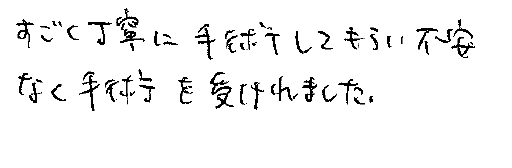 すごく丁寧に手術してもらい不安
なく手術を受けれました。